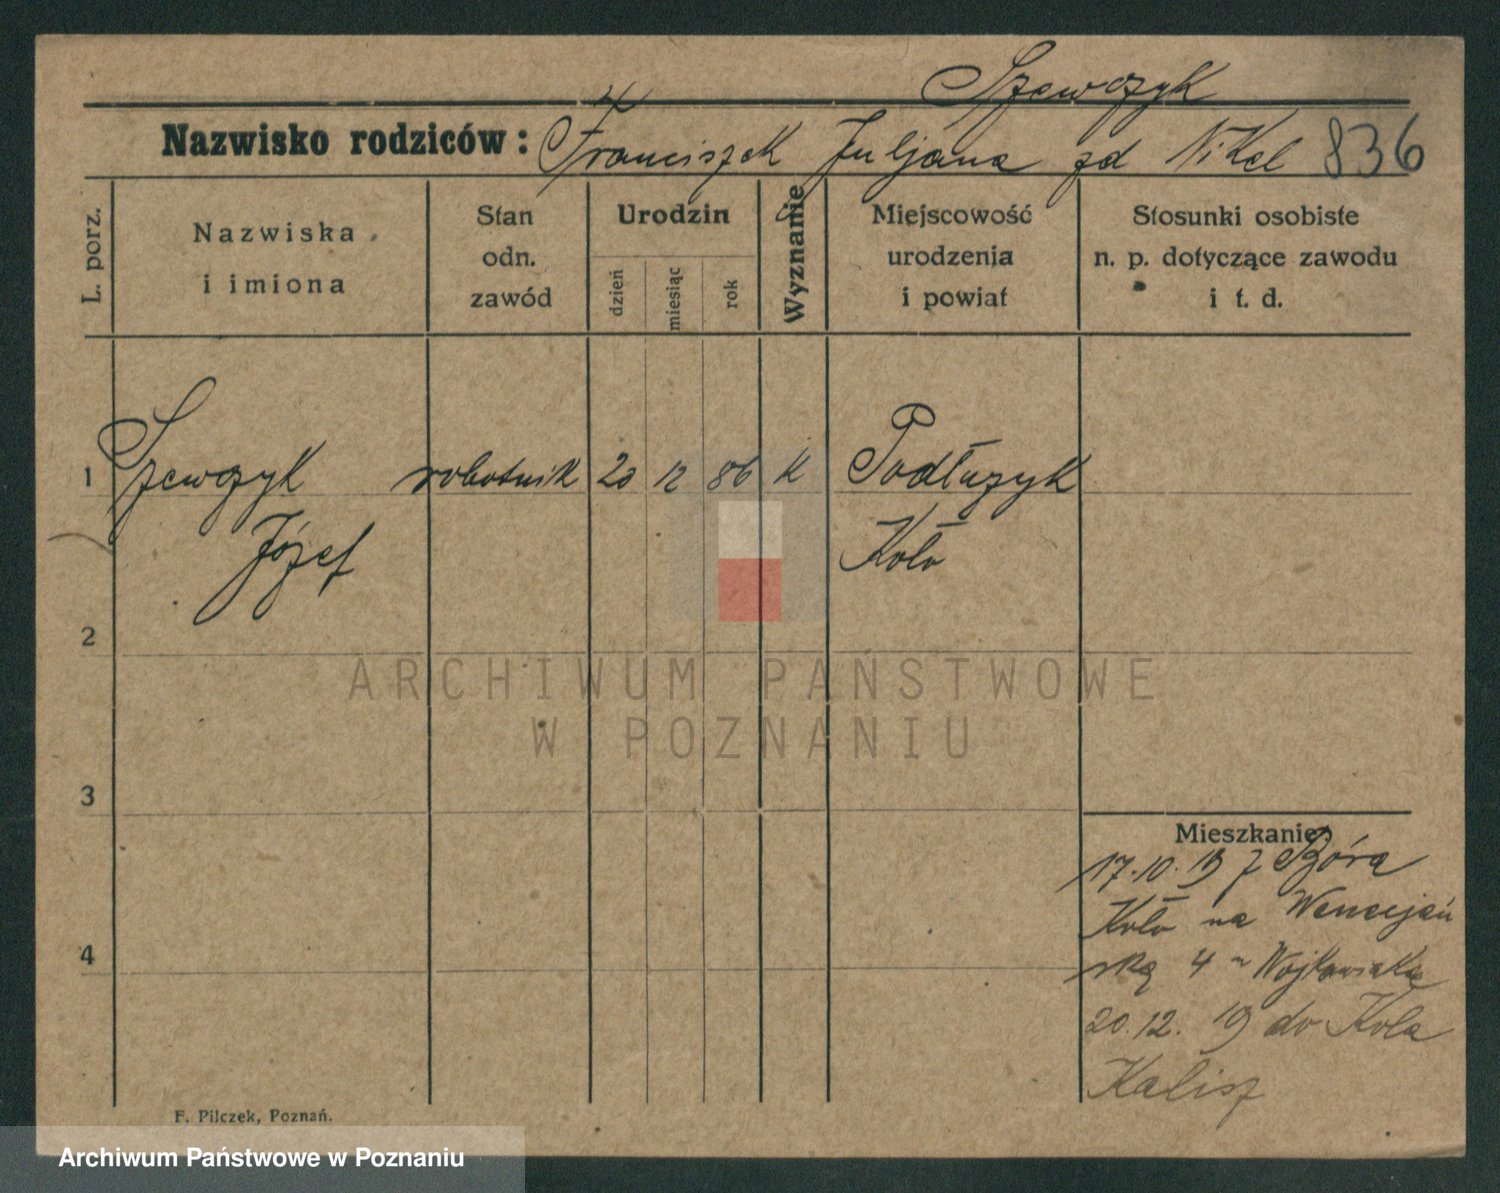 Szewczyk
Nazwisko rodziców: Franciszek Juljana zd Nikel 836
L. porz.
Nazwiska
i imiona
Stan
odn.
zawód
Urodzin
dzień
miesiąc
rok
Wyznanie
Miejscowość
urodzenia
i powiat
Stosunki osobiste
n. p. dotyczące zawodu
i t. d.
1 Szewczyk robotnik 20 12 86 k Podłużyk
Józef Koło
2
ARCHIWUM PAŃSTWOWE
W POZNANIU
3
Mieszkanie:
17.10.19 z
Koło na Wenecjań
ską 4
4
20.12.19 do Koła
Kalisz
F. Pilczek, Poznań.
Archiwum Państwowe w Poznaniu